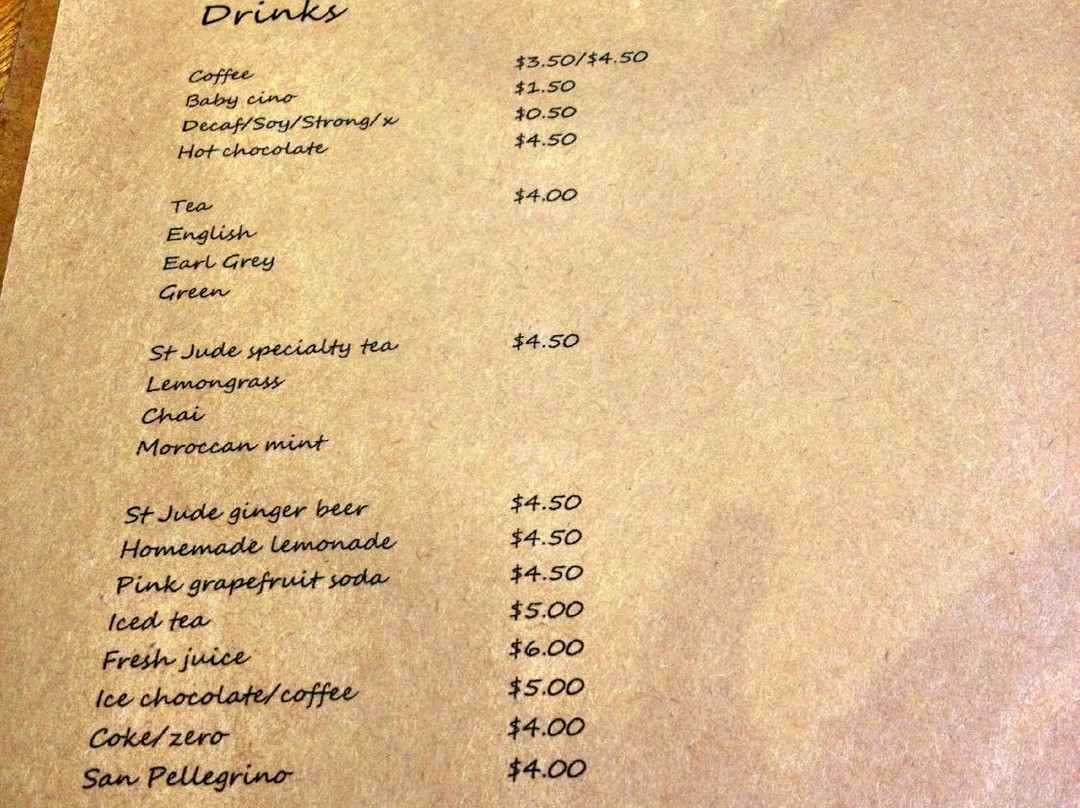 Drinks
Coffee $3.50/$4.50
Baby cino $1.50
Decaf/Soy/Strong/x $0.50
Hot chocolate $4.50
Tea $4.00
English
Earl Grey
Green
St Jude specialty tea $4.50
Lemongrass
Chai
Moroccan mint
St Jude ginger beer $4.50
Homemade lemonade $4.50
Pink grapefruit soda $4.50
Iced tea $5.00
Fresh juice $6.00
Ice chocolate/coffee $5.00
Coke/zero $4.00
San Pellegrino $4.00